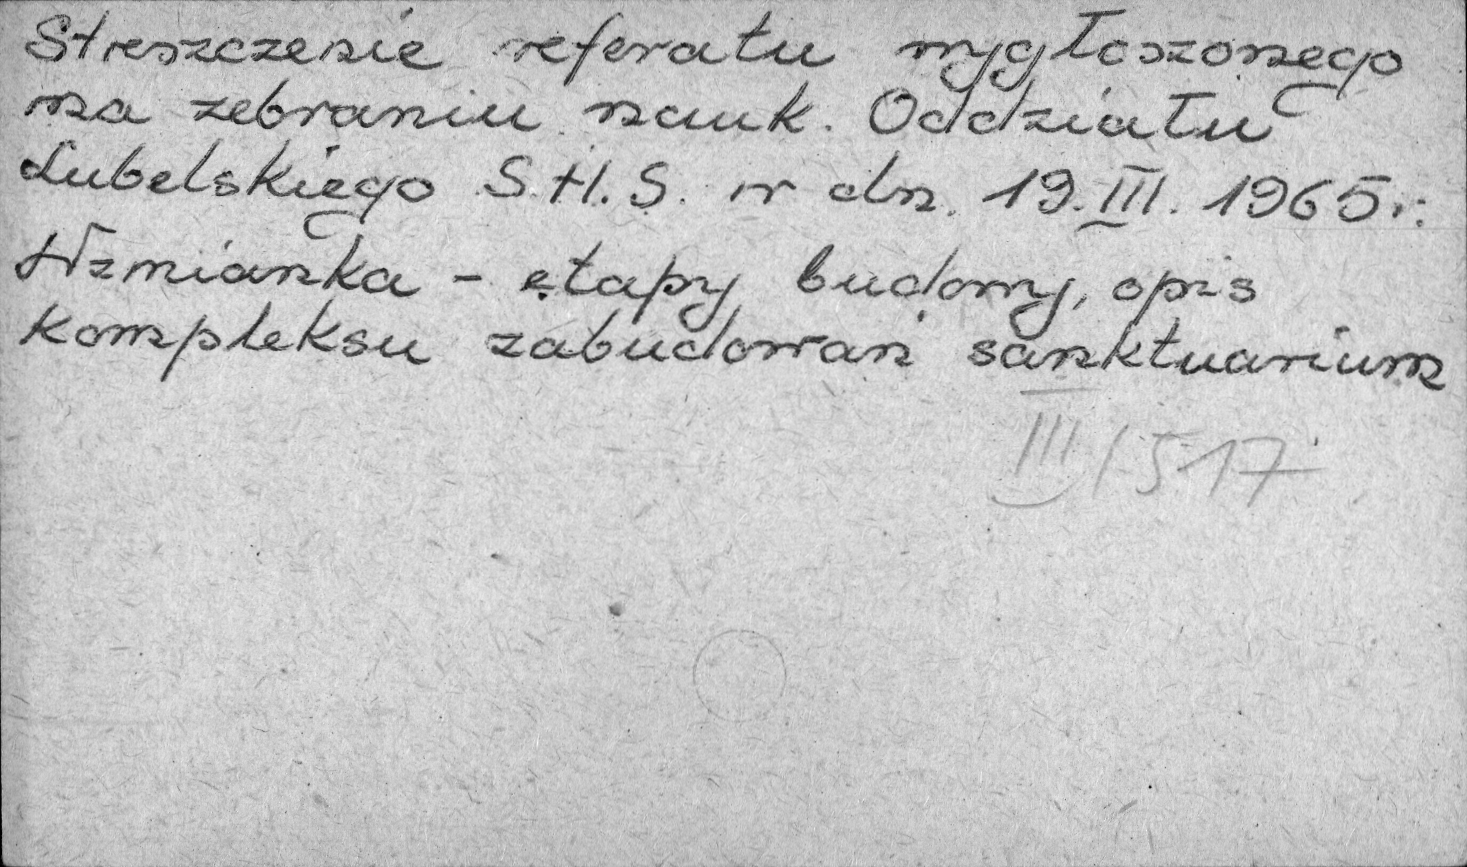 Streszczenie referatu wygłoszonego
na zebraniu nauk. Oddziału
Lubelskiego S.H.S. w dn. 19.III. 1965 r.
Wzmianka - etapy budowy, opis
kompleksu zabudowań sanktuarium
III/517